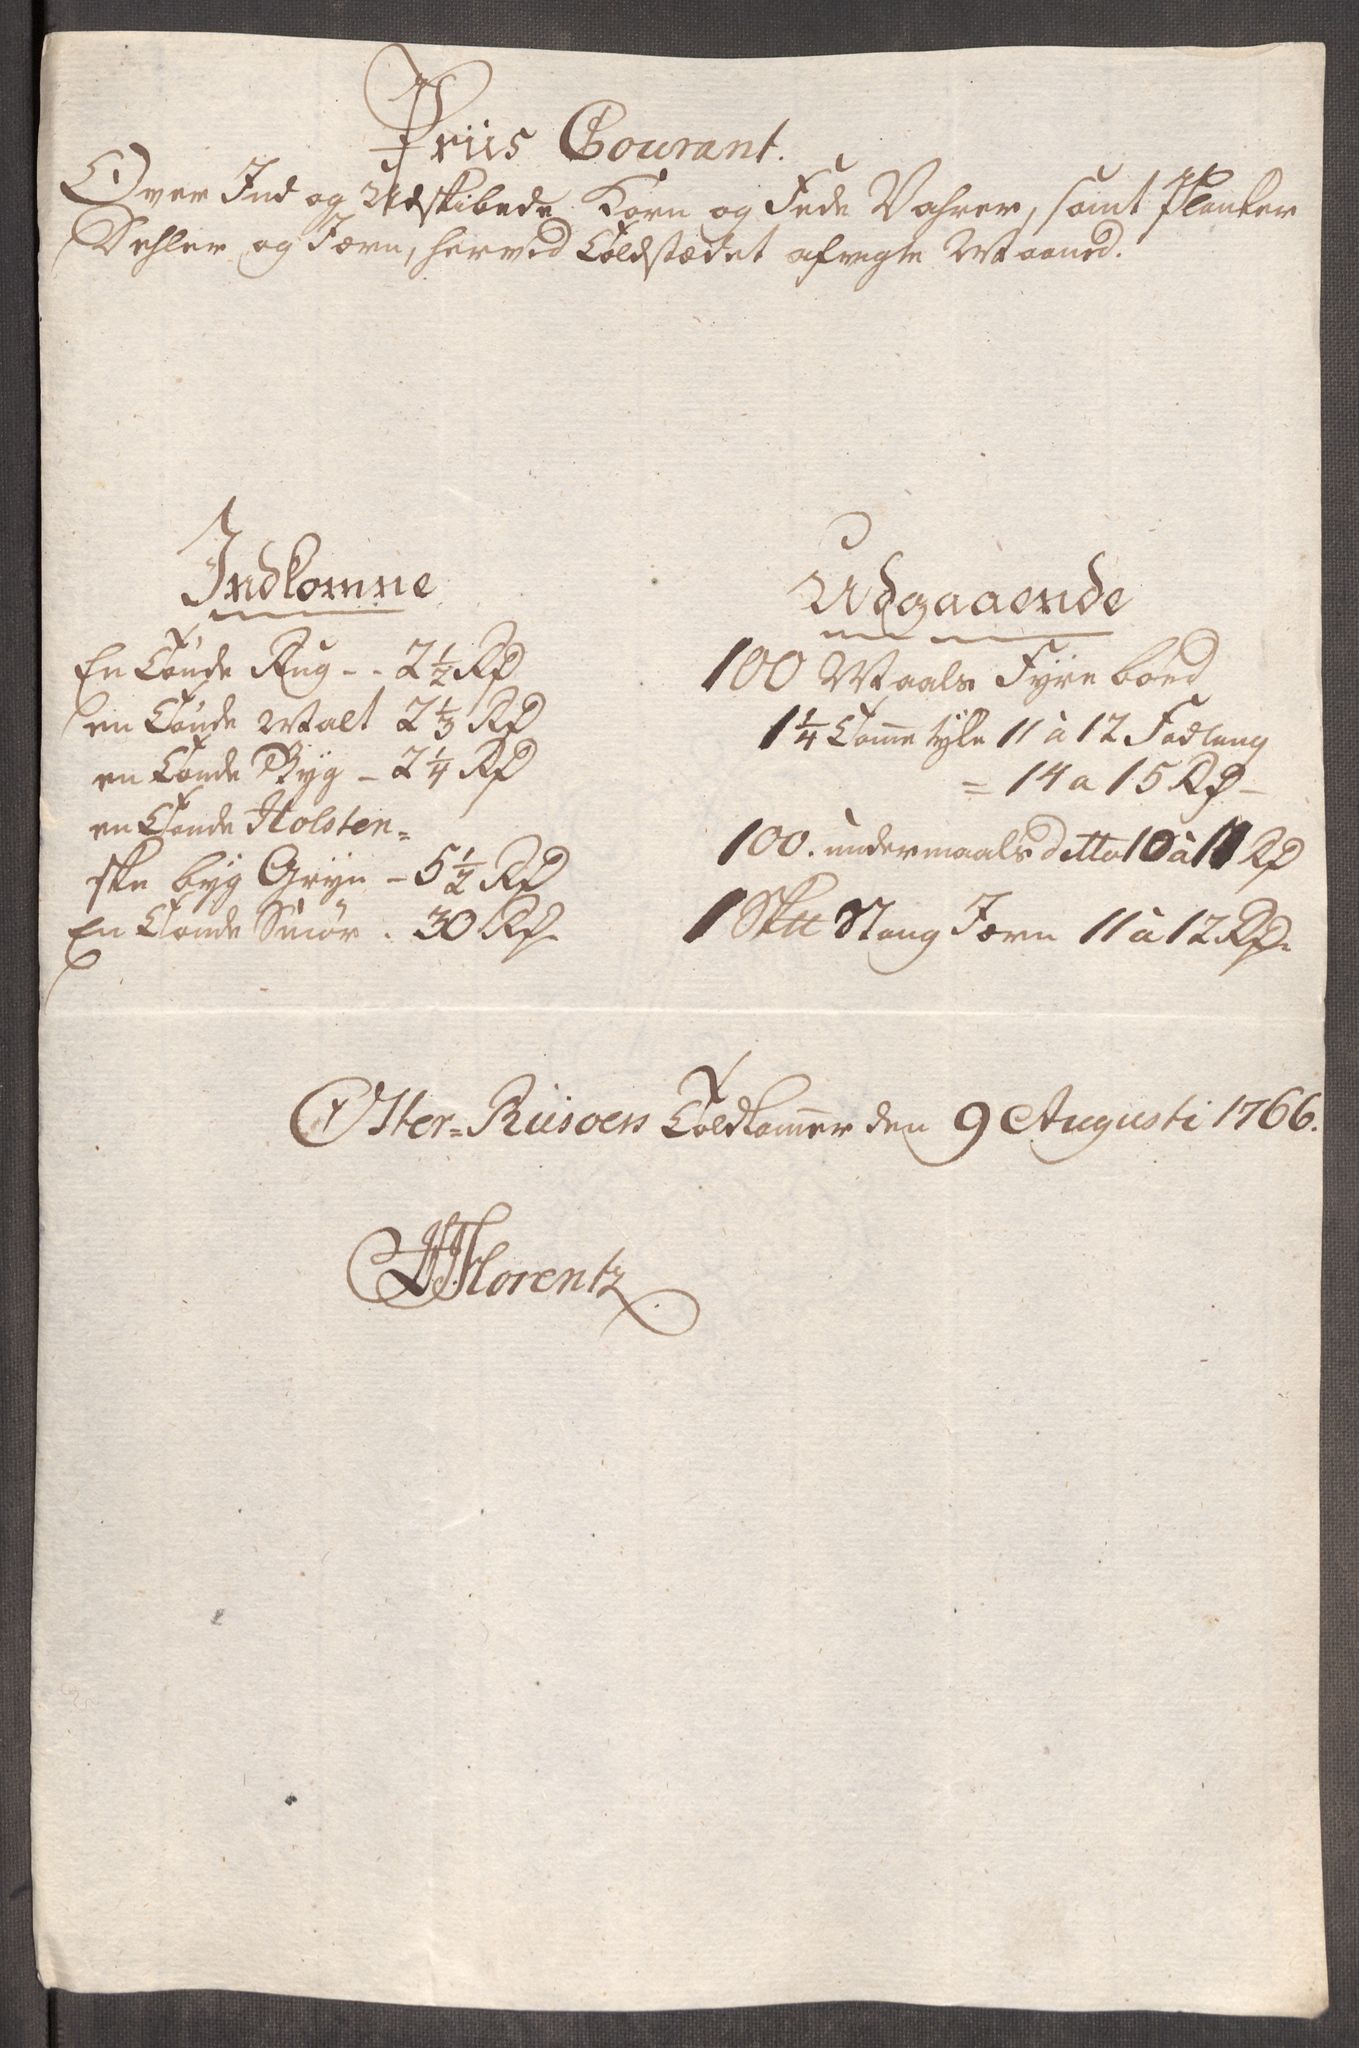 Priis Courant.
Over Ind og Udskibede Korn og Fede Vahrer, samt Planker
Dehler og Jærn, herved Toldstædet afvigte Maaned.
Indkomne
En Tønde Rug - - 2 1/2 Rd
en Tønde Malt 2 1/3 Rd
en Tønde Byg - 2 1/4 Rd
en Tønde Holsten=
ske byg Gryn - 5 1/2 Rd
En Tønde Smør . 30 Rd
Udgaaende
100 Maals Fyre bord
1 1/4 Tomme tyke 11 à 12 Fod lang
= 14 a 15 Rd -
100. undermaals ditto 10 à 11 Rd
1 Sk℔ Stang Jærn 11 à 12 Rd
Oster-Riisoers Toldkammer den 9 Augusti 1766.
Florentz